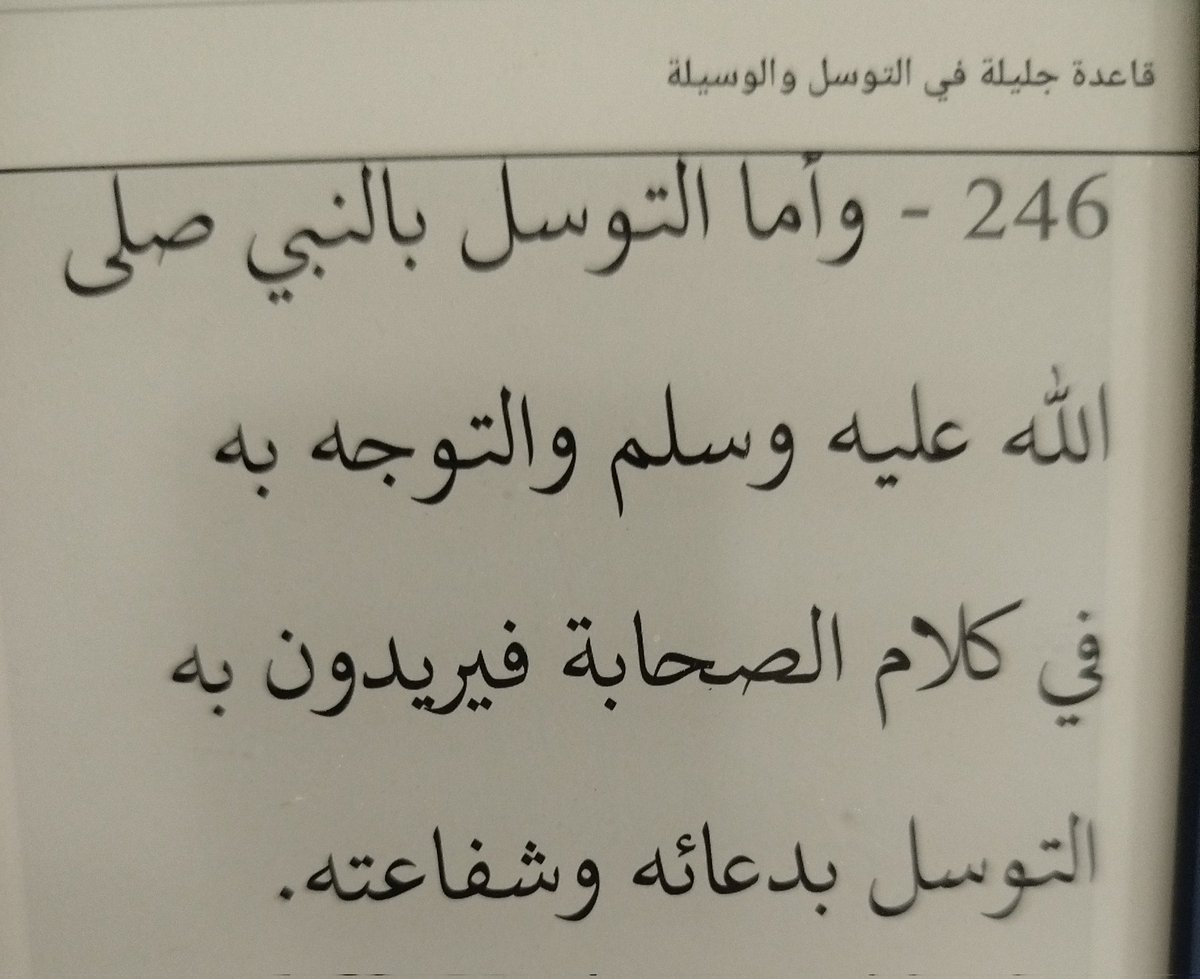 قاعدة جليلة في التوسل والوسيلة
246 - وأما التوسل بالنبي صلى
الله عليه وسلم والتوجه به
في كلام الصحابة فيريدون به
التوسل بدعائه وشفاعته.